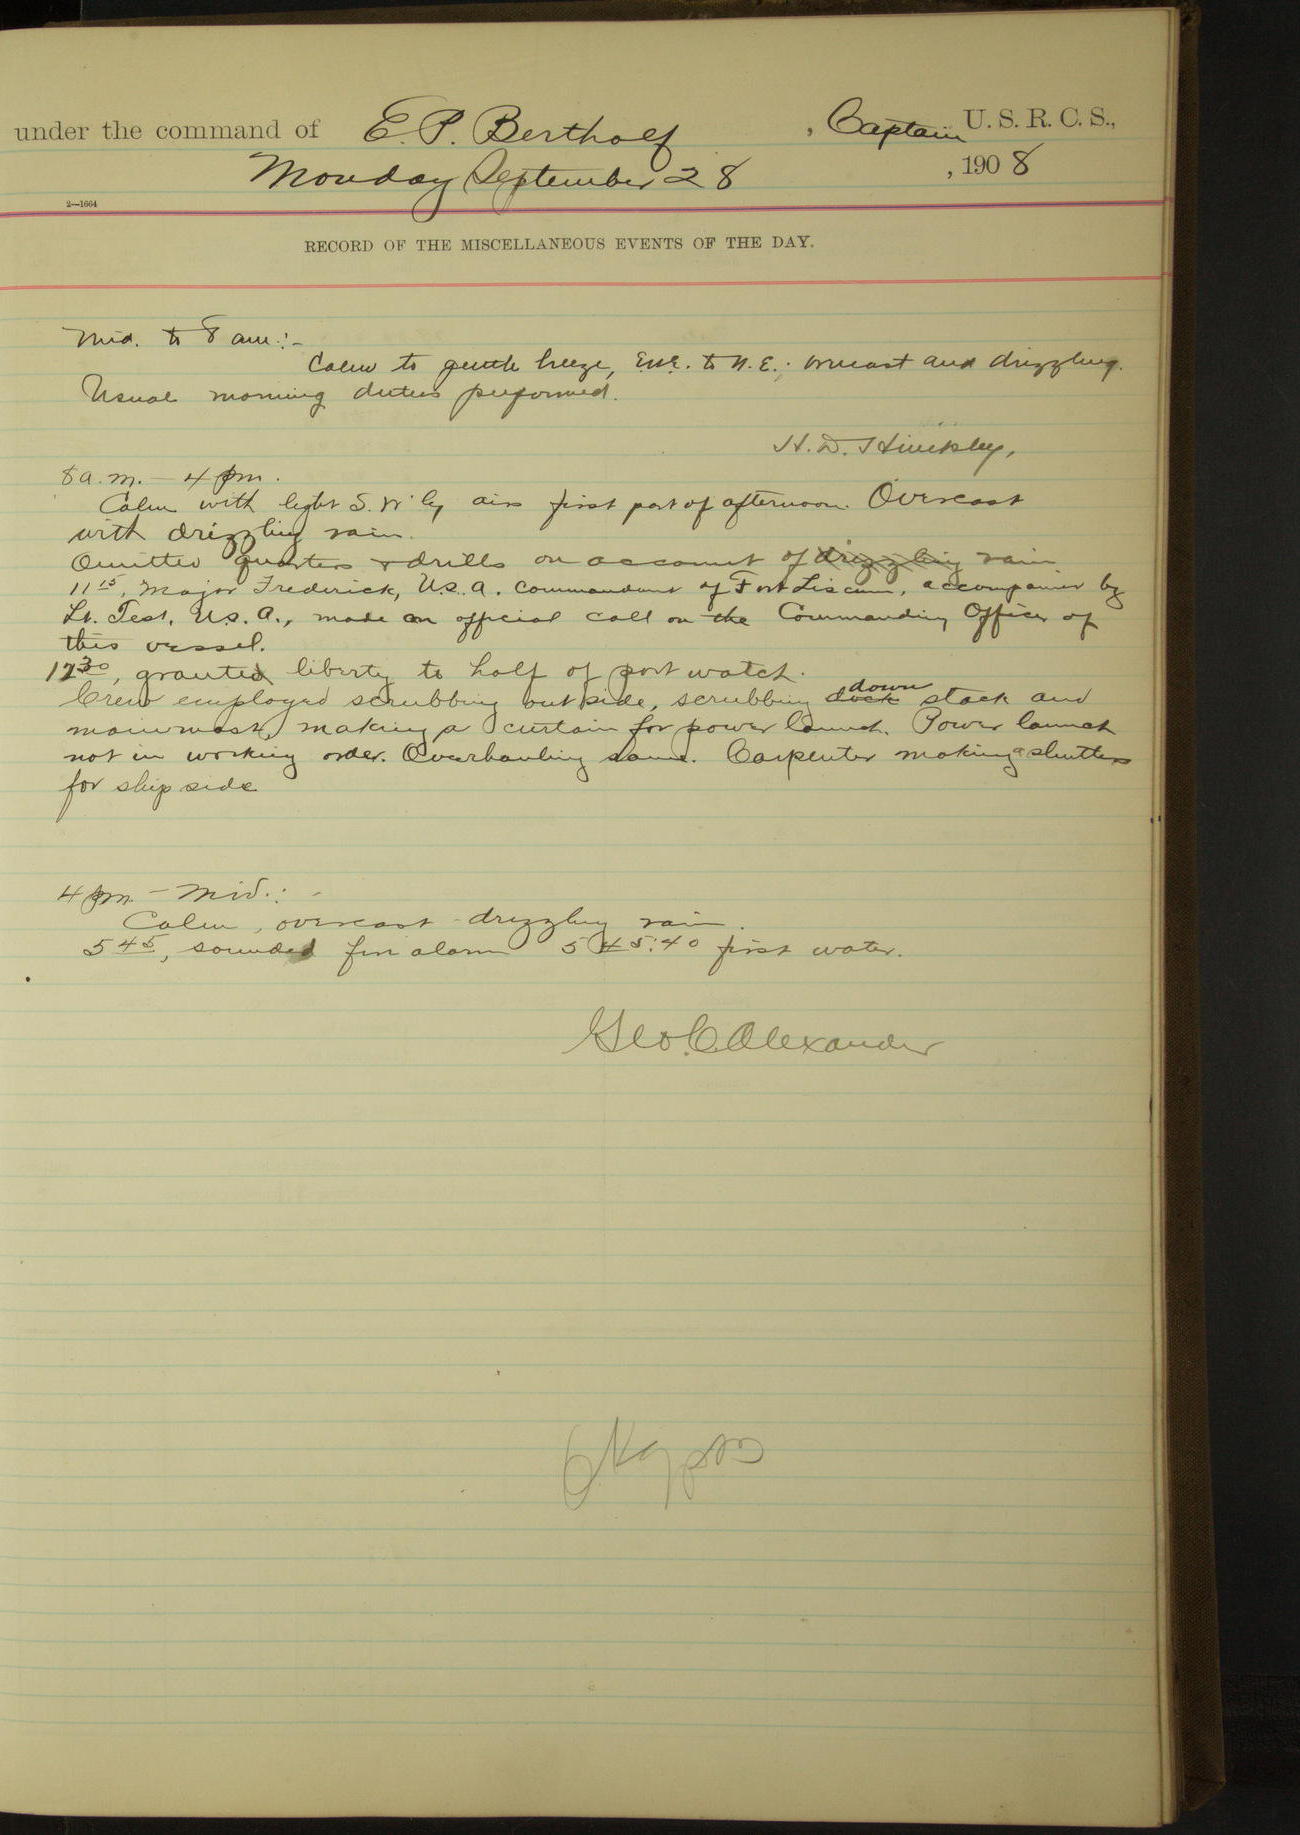 under the command of E. P. Bertholf , Captain U. S. R. C. S.,
Monday September 28 , 1908
2—1664
RECORD OF THE MISCELLANEOUS EVENTS OF THE DAY.
Mid. to 8 am:-
Calm to gentle breeze, ENE. to N.E.; overcast and drizzling.
Usual morning duties performed.
H. D. Hinckley,
8 a.m. - 4 pm.
Calm with light S.W'ly airs first part of afternoon. Overcast
with drizzling rain.
Omitted quarters & drills on account of drizzling rain
11 15, Major Frederick, U.S.A. Commandant of Fort Liscum, accompanied by
Lt. Test, U.S.A., made an official call on the Commanding Officer of
this vessel.
12 30, granted liberty to half of port watch.
Crew employed scrubbing outside, scrubbing down stack and
mainmast, making a curtain for power launch. Power launch
not in working order. Overhauling same. Carpenter making a shutters
for ship side
4 pm - Mid.: -
Calm, overcast - drizzling rain.
5 45, sounded fire alarm 5 45:40 first water.
Geo. C. Alexander